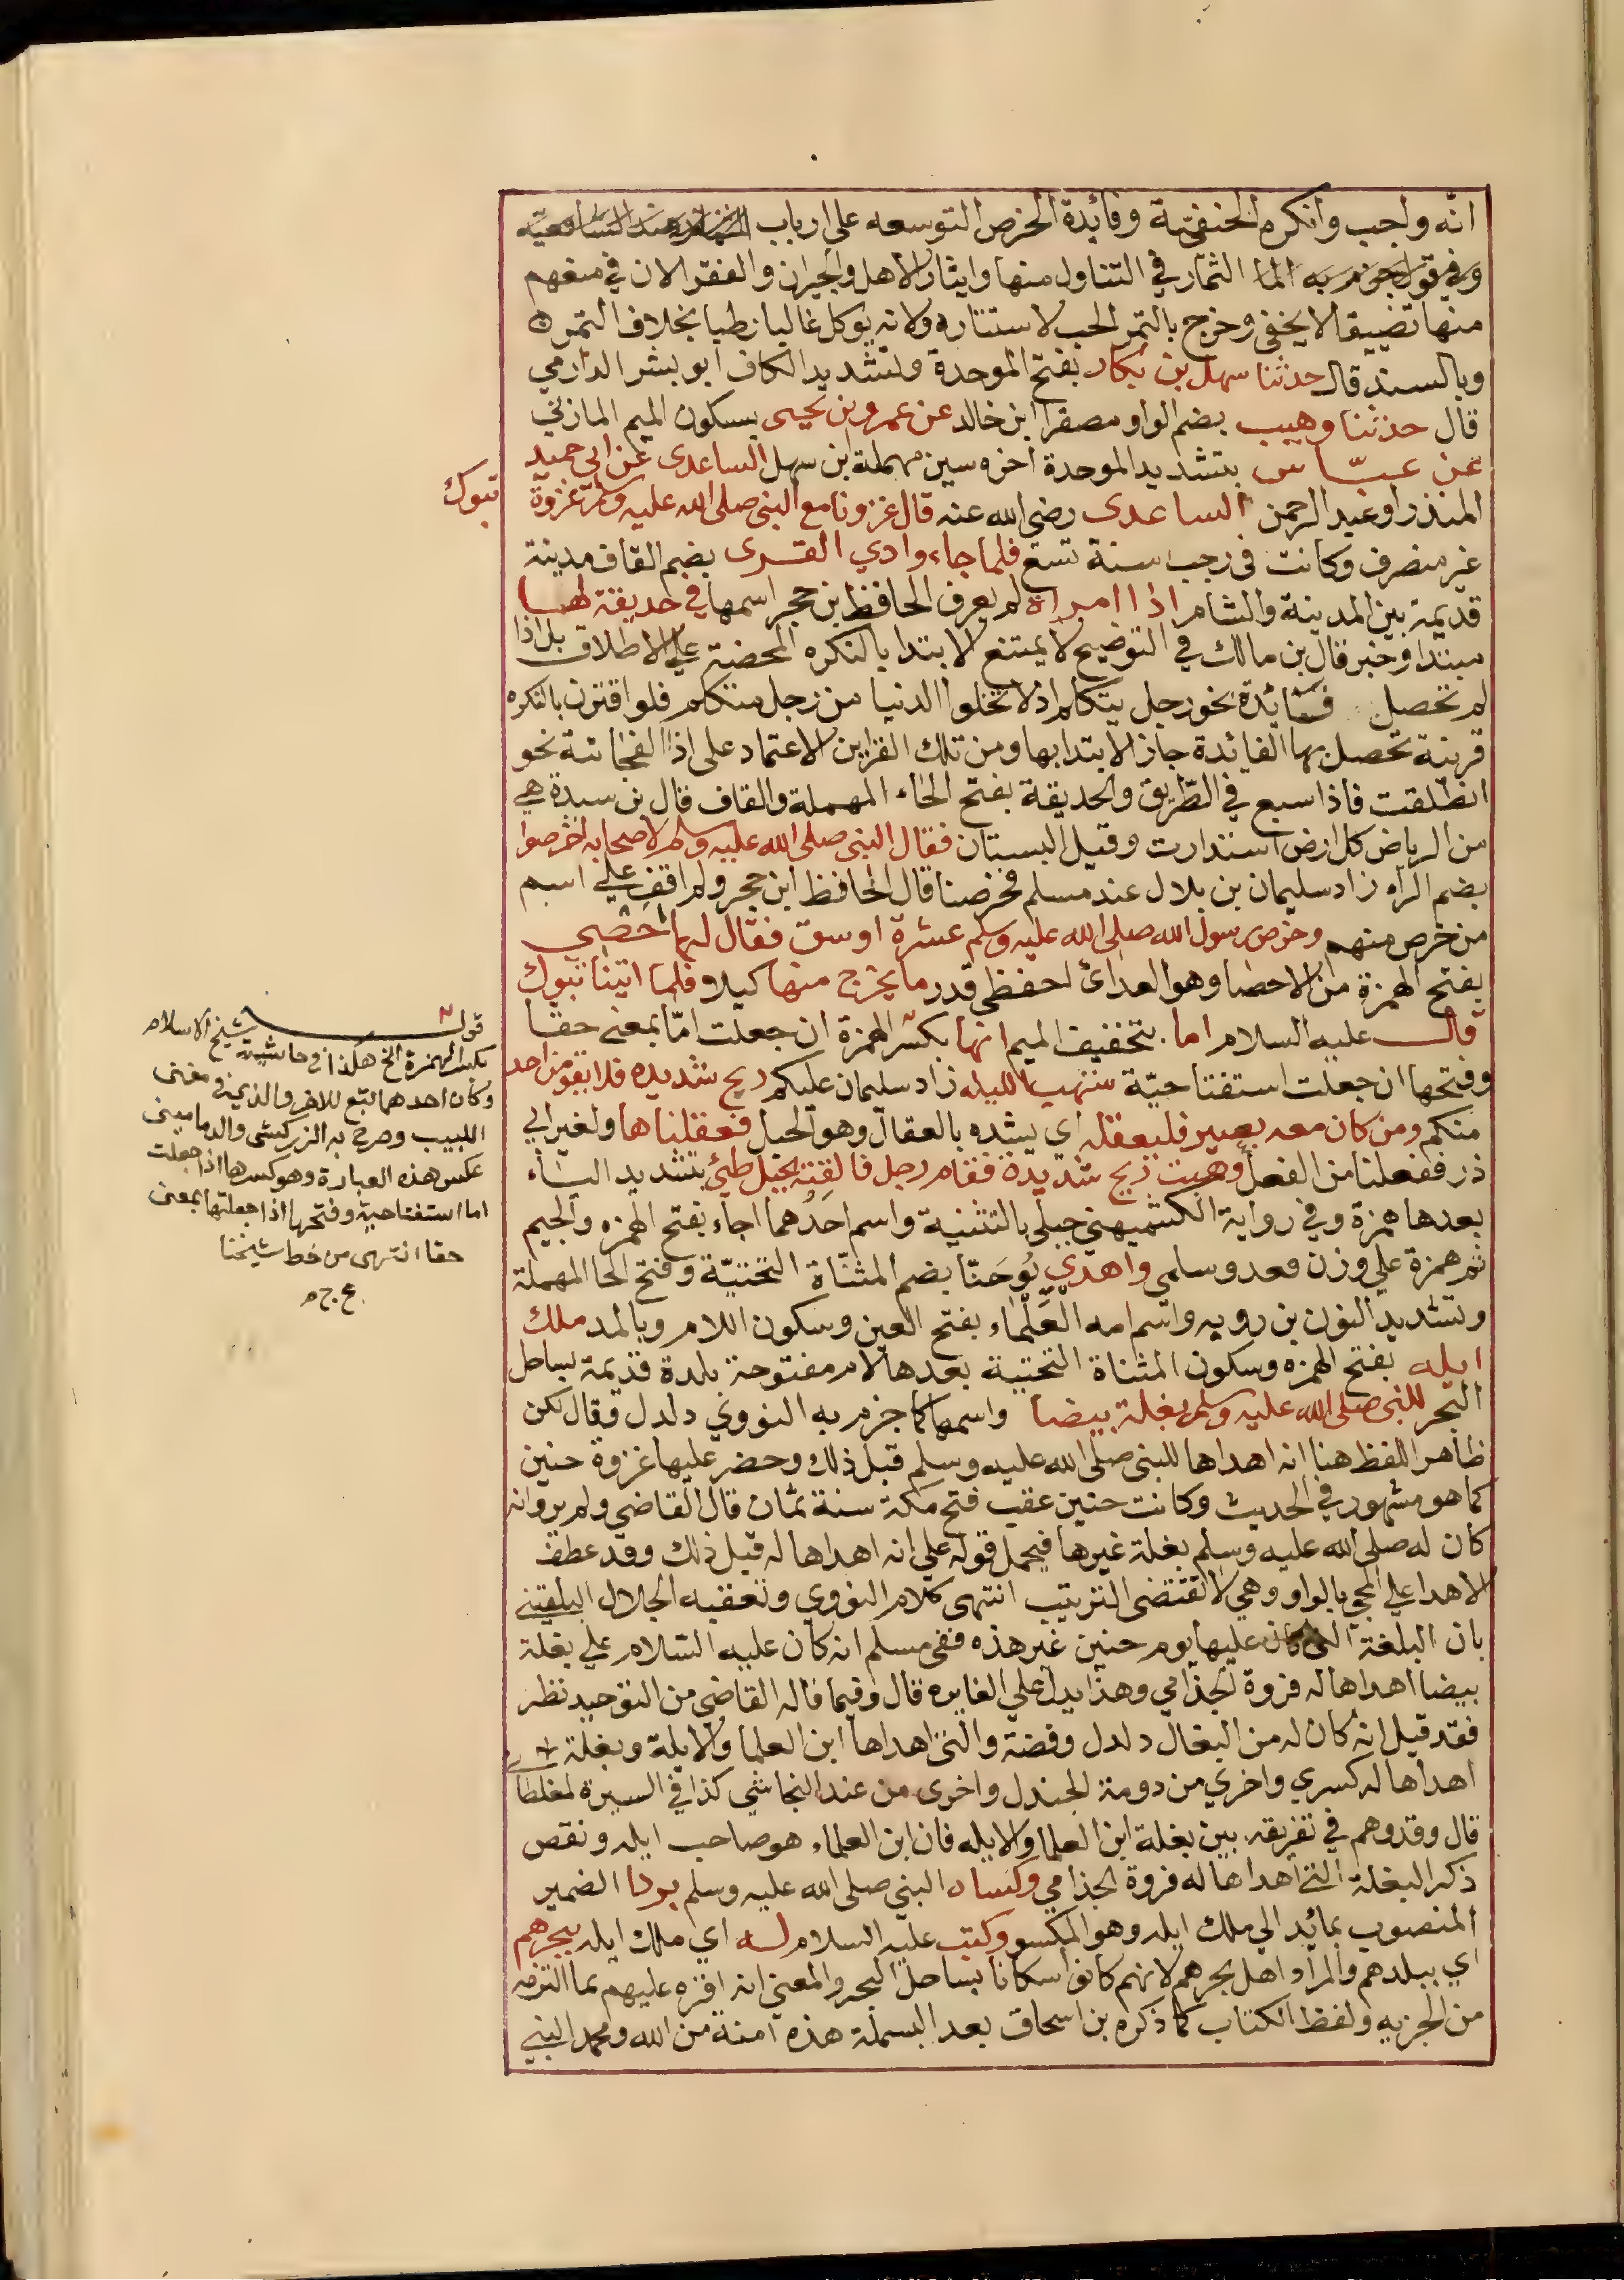 انّه واجب وانكره الحنفيّة وفائدة الخرص التوسعه علي ارباب
الثمار في التناول منها وايثار الاهل والجيران والفقرا لان في منعهم
منها تضييقا لا يخفي وخرج بالتمر الحب لاستتاره ولانه يوكل غالبا رطبا بخلاف التمره
وبالسند قال حدثنا سهل بن بكار بفتح الموحدة وتشديد الكاف ابو بشر الدارمي
قال حدثنا وهيب بضم الواو مصغرا ابن خالد عن عمرو بن يحيى بسكون الميم المازني
عن عبّاس بتشديد الموحدة اخره سين مهملة ابن سهل الساعدى عن ابي حميد
المنذر او عبد الرحمن الساعدى رضي الله عنه قال غزونا مع النبي صلى الله عليه وسلم غزوة
تبوك
غير منصرف وكانت في رجب سنة تسع فلما جاء وادي القرى بضم القاف مدينة
قديمة بين المدينة والشام اذا امراة لم يعرف الحافظ بن حجر اسمها في حديقة لها
مبتدا وخبر قال بن مالك في التوضيح لا يمتنع الابتدا بالنكره المحضة علي الاطلاق بل اذا
لم تحصل فائدة نحو رجل يتكلم اذ لا تخلوا الدنيا من رجل متكلم فلو اقترن بالنكره
قرينة تحصل بها الفائدة جاز الابتدا بها ومن تلك القراين الاعتماد على اذا الفجائية نحو
انطلقت فاذا سبع في الطّريق والحديقة بفتح الحاء المهملة والقاف قال بن سيدة هي
من الرياض كل ارض استدارت وقيل البستان فقال النبي صلى الله عليه وسلم لاصحابه اخرصوا
بضم الراء زاد سليمان بن بلال عند مسلم فخرصنا قال الحافظ ابن حجر ولم اقف علي اسم
من خرص منهم وخرص رسول الله صلى الله عليه وسلم عشرة اوسق فقال لها احصي
بفتح الهمزة من الاحصا وهو العد اي احفظي قدر ما يخرج منها كيلا فلما اتينا تبوك
قال عليه السلام اما بتخفيف الميم انها بكسر الهمزة ان جعلت امّا بمعنى حقا
وفتحها ان جعلت استفتاحيّة ستهب الليله زاد سليمان عليكم ريح شديده فلا يقومن احد
منكم ومن كان معه بعير فليعقله اي يشده بالعقال وهو الحبل فعقلناها ولغير ابي
ذر ففعلنا من الفعل وهبت ريح شديدة فقام رجل فالقته بجبل طيئ بتشديد الياء
بعدها همزة وفي رواية الكشميهني جبلي بالتثنية واسم احدهما اجاء بفتح الهمزه والجيم
ثم همزة علي وزن فعل وسلمي واهدي يُوحَنّا بضم المثنّاة التحتيّة وفتح الحا المهملة
وتشديد النون بن روبه واسم امه العَلماء بفتح العين وسكون اللام وبالمد ملك
ايله بفتح الهمزه وسكون المثناة التحتية بعدها لام مفتوحة بلدة قديمة بساحل
البحر للنبي صلى الله عليه وسلم بغلة بيضا واسمها كما جزم به النووي دلدل وقال لكن
ظاهر اللفظ هنا انه اهداها للنبي صلى الله عليه وسلم قبل ذلك وحضر عليها غزوة حنين
كما هو مشهور في الحديث وكانت حنين عقب فتح مكة سنة ثمان قال القاضي ولم يرو انه
كان له صلى الله عليه وسلم بغلة غيرها فيحمل قوله علي انه اهداها له قبل ذلك وقد عطف
الاهدا علي المجي بالواو وهي لا تقتضي الترتيب انتهى كلام النووي وتعقبه الجلال البلقيني
بان البلغة التي كان عليها يوم حنين غير هذه ففي مسلم انه كان عليه السّلام علي بغلة
بيضا اهداها له فروة الجذامي وهذا يدل علي المغايره قال وفيما قاله القاضي من التوحيد نظر
فقد قيل انه كان له من البغال دلدل وفضة والتي اهداها ابن العلما والايلة وبغلة
اهداها له كسري واخري من دومة الجندل واخرى من عند النجاشي كذا في السيرة لمغلطا
قال وقد وهم في تفريقه بين بغلة ابن العلما والايله فان ابن العلماء هو صاحب ايله ونقص
ذكر البغلة التي اهداها له فروة الجذامي وكساه النبي صلى الله عليه وسلم بردا الضمير
المنصوب عائد الي ملك ايله وهو المكسو وكتب عليه السلام له اي ملك ايله ببحرهم
اي ببلدهم والمراد اهل بحرهم لانهم كانوا سكانا بساحل البحر والمعني انه اقره عليهم بما التزمه
من الجزيه ولفظ الكتاب كما ذكره بن اسحاق بعد البسملة هذه امنة من الله ومحمد النبي
قوله
بكسر الهمزة الخ هكذا في حاشية شيخ الاسلام
وكان احدهما تبع للاخر والذي في مغنى
اللبيب وصرح به الزركشي والدماميني
عكس هذه العبارة وهو كسرها اذا جعلت
اما استفتاحية وفتحها اذا جعلتها بمعنى
حقا انتهى من خط شيخنا
ع ج م